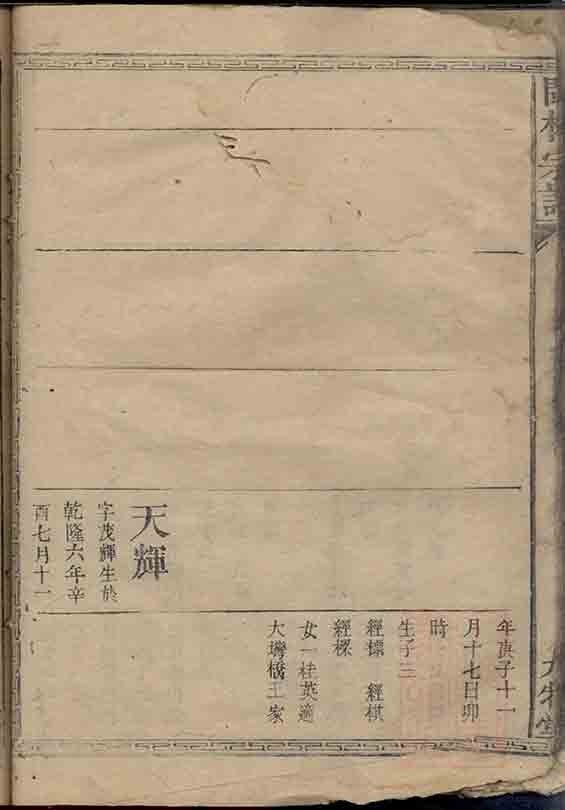 宗譜
天輝
字茂輝生於
乾隆六年辛
酉七月十一
年庚子十一
月十七日卯
時
生子三
經標 經棋
經樑
女一桂英適
大灣橋王家